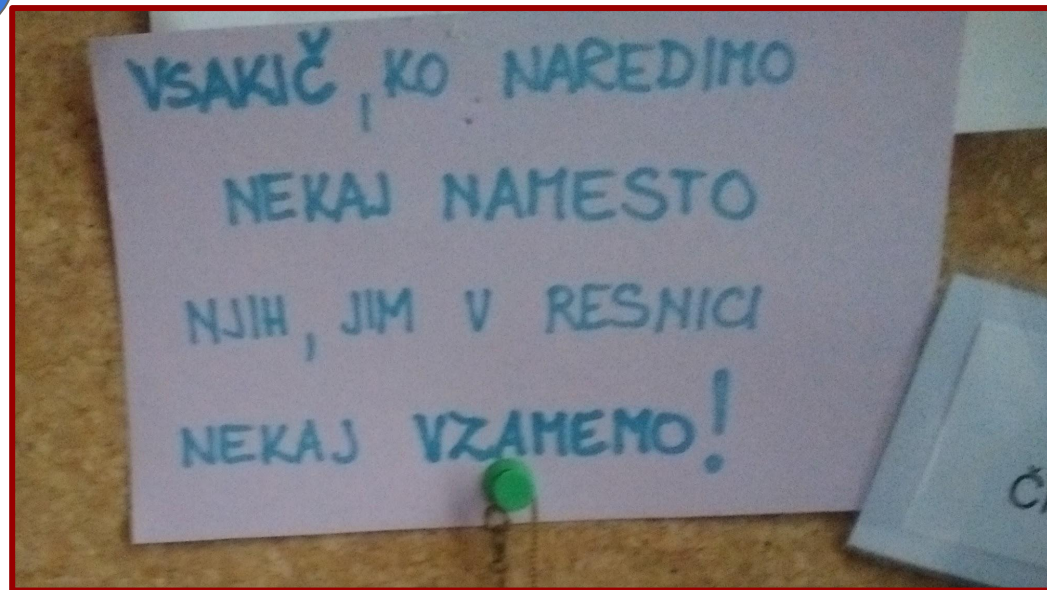 VSAKIČ, KO NAREDIMO
NEKAJ NAMESTO
NJIH, JIM V RESNICI
NEKAJ VZAMEMO!